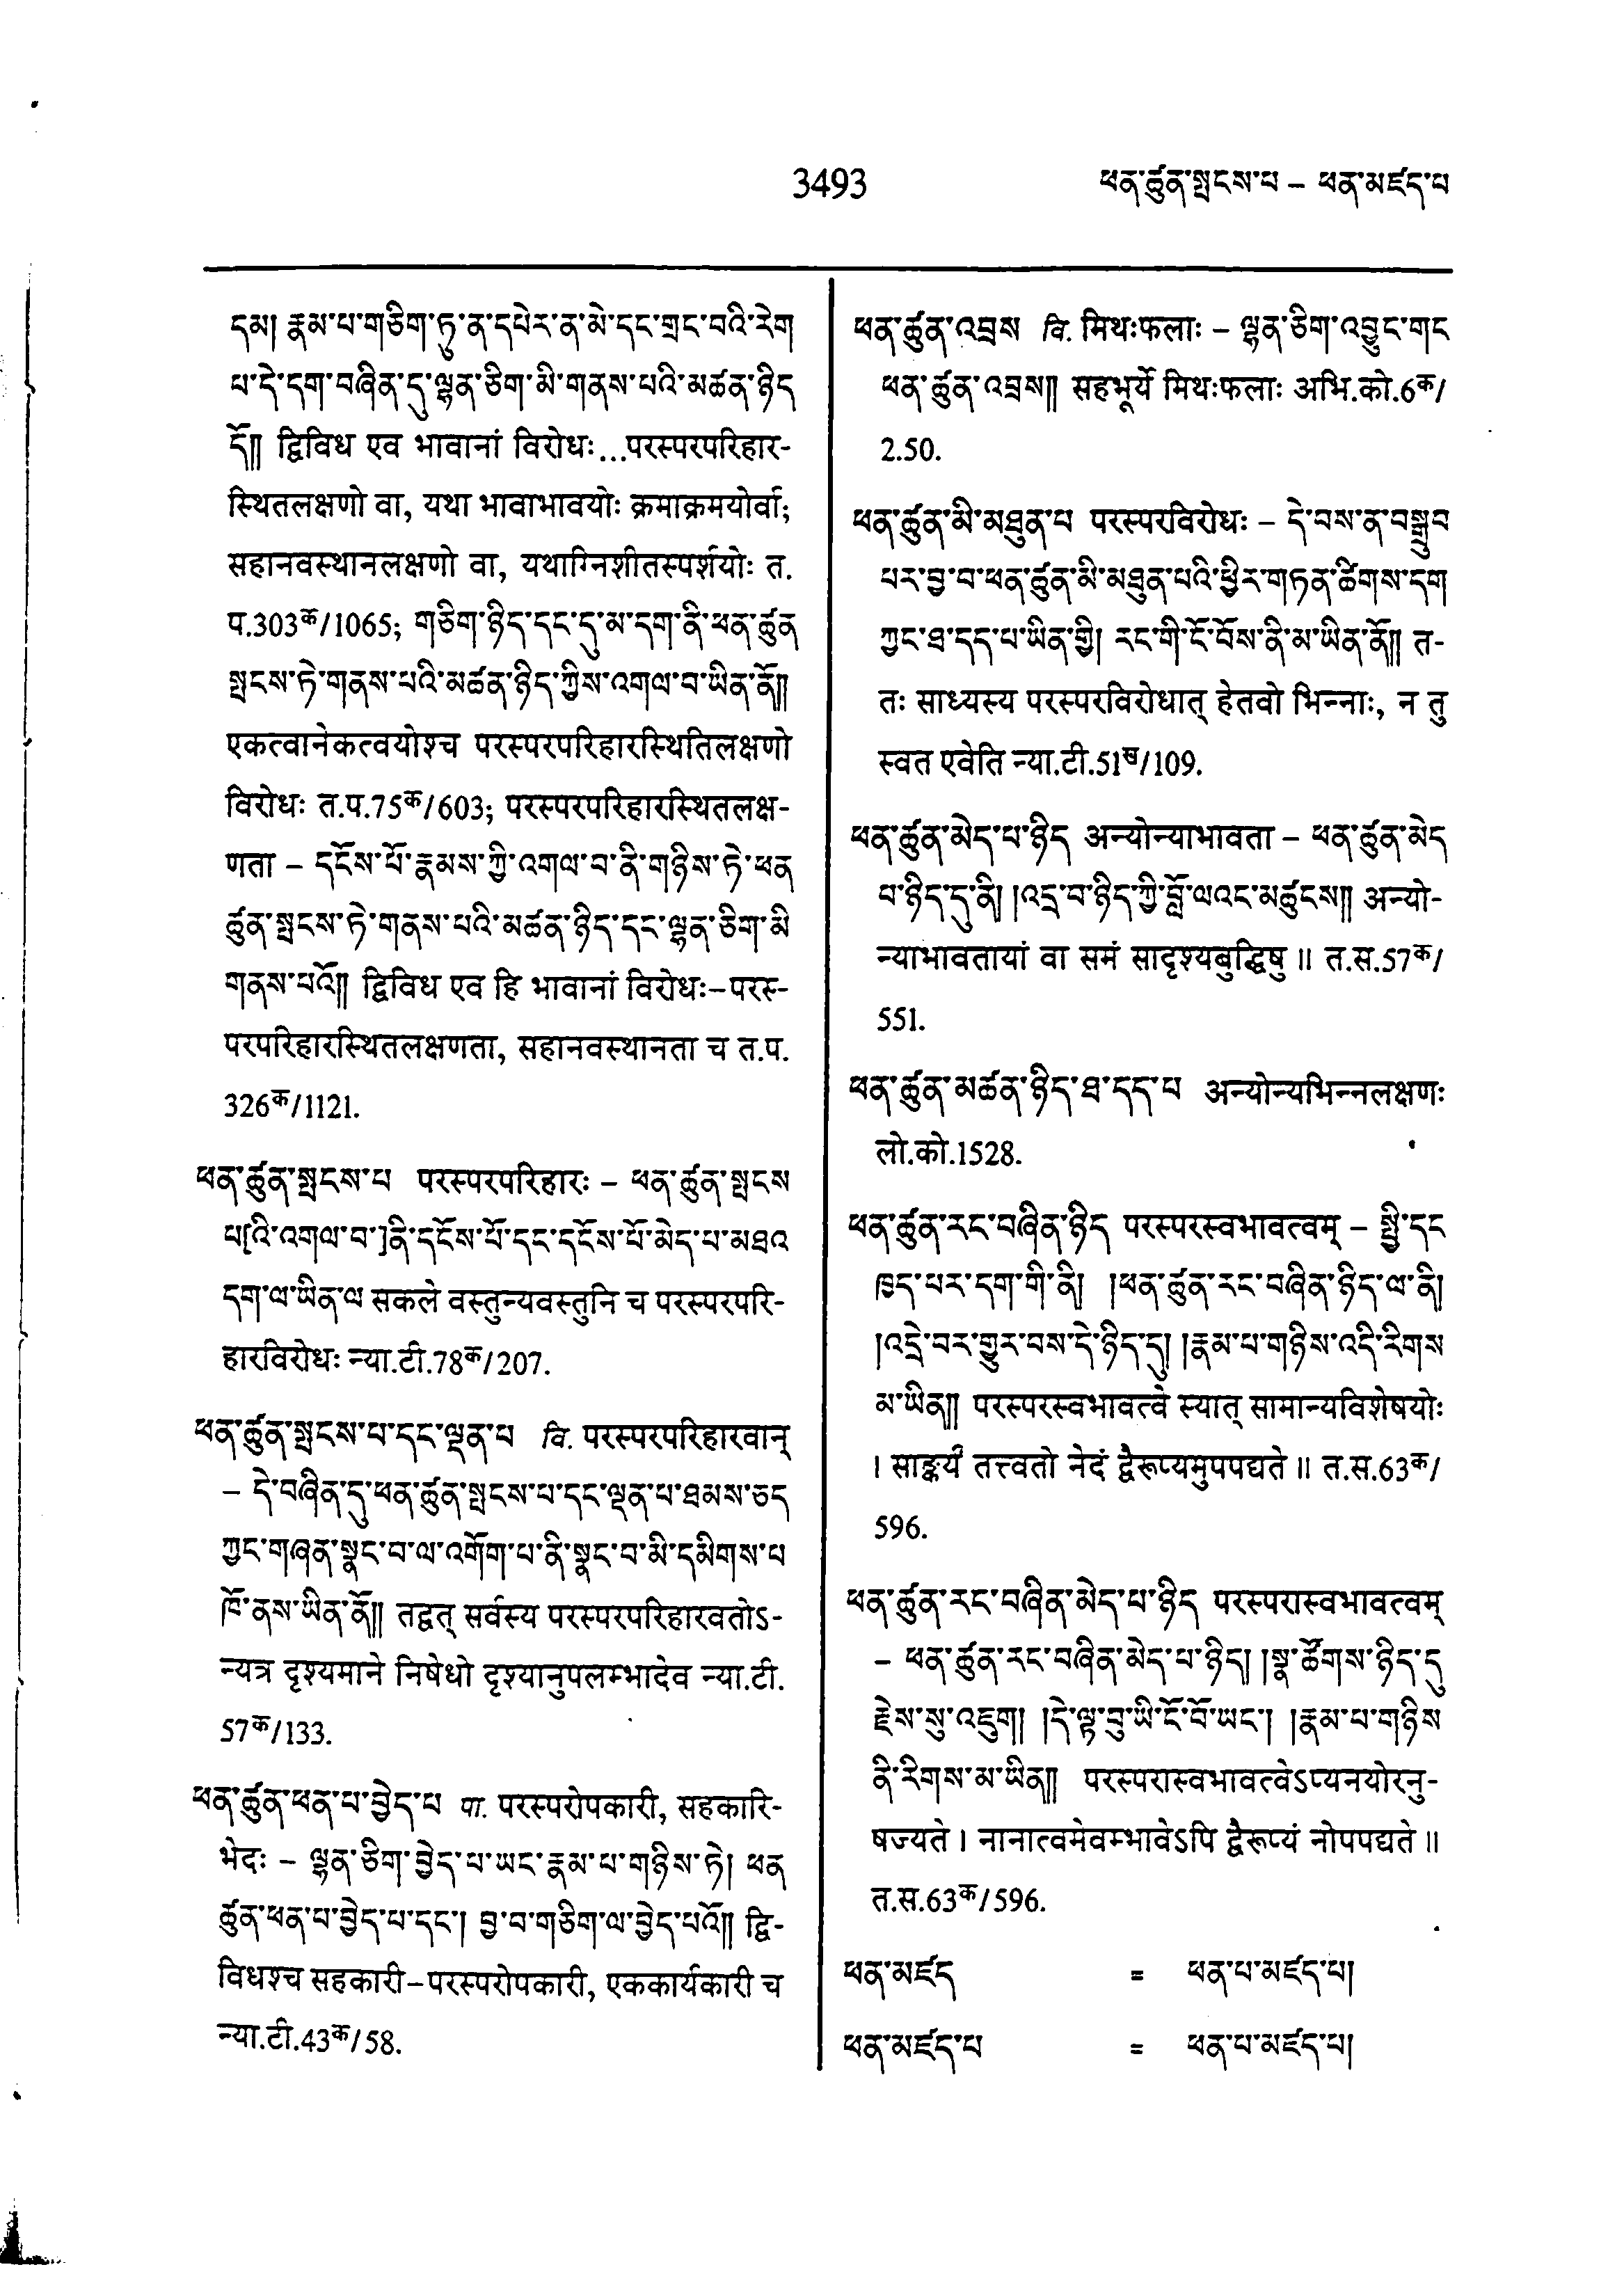 3493
ཕན་ཚུན་སྤངས་པ – ཕན་མཛད་པ
དམ། རྣམ་པ་གཅིག་ཏུ་ན་དཔེར་ན་མེ་དང་གྲང་བའི་རེག
པ་དེ་དག་བཞིན་དུ་ལྷན་ཅིག་མི་གནས་པའི་མཚན་ཉིད
དོ༎ द्विविध एव भावानां विरोधः...परस्परपरिहार-
स्थितलक्षणो वा, यथा भावाभावयोः क्रमाक्रमयोर्वा;
सहानवस्थानलक्षणो वा, यथाग्निशीतस्पर्शयोः त.
प.303क/1065; གཅིག་ཉིད་དང་དུ་མ་དག་ནི་ཕན་ཚུན
སྤངས་ཏེ་གནས་པའི་མཚན་ཉིད་ཀྱིས་འགལ་བ་ཡིན་ནོ༎
एकत्वानेकत्वयोश्च परस्परपरिहारस्थितिलक्षणो
विरोधः त.प.75क/603; परस्परपरिहारस्थितलक्ष-
णता – དངོས་པོ་རྣམས་ཀྱི་འགལ་བ་ནི་གཉིས་ཏེ་ཕན
ཚུན་སྤངས་ཏེ་གནས་པའི་མཚན་ཉིད་དང་ལྷན་ཅིག་མི
གནས་པའོ༎ द्विविध एव हि भावानां विरोधः–परस्-
परपरिहारस्थितलक्षणता, सहानवस्थानता च त.प.
326क/1121.
ཕན་ཚུན་སྤངས་པ परस्परपरिहारः – ཕན་ཚུན་སྤངས
པ[འི་འགལ་བ་]ནི་དངོས་པོ་དང་དངོས་པོ་མེད་པ་མཐའ
དག་ལ་ཡིན་ལ सकले वस्तुन्यवस्तुनि च परस्परपरि-
हारविरोधः न्या.टी.78क/207.
ཕན་ཚུན་སྤངས་པ་དང་ལྡན་པ वि. परस्परपरिहारवान्
– དེ་བཞིན་དུ་ཕན་ཚུན་སྤངས་པ་དང་ལྡན་པ་ཐམས་ཅད
ཀྱང་གཞན་སྣང་བ་ལ་འགོག་པ་ནི་སྣང་བ་མི་དམིགས་པ
ཁོ་ནས་ཡིན་ནོ༎ तद्वत् सर्वस्य परस्परपरिहारवतोऽ-
न्यत्र दृश्यमाने निषेधो दृश्यानुपलम्भादेव न्या.टी.
57क/133.
ཕན་ཚུན་ཕན་པ་བྱེད་པ पा. परस्परोपकारी, सहकारि-
भेदः – ལྷན་ཅིག་བྱེད་པ་ཡང་རྣམ་པ་གཉིས་ཏེ། ཕན
ཚུན་ཕན་པ་བྱེད་པ་དང་། བྱ་བ་གཅིག་ལ་བྱེད་པའོ༎ द्वि-
विधश्च सहकारी–परस्परोपकारी, एककार्यकारी च
न्या.टी.43क/58.
ཕན་ཚུན་འབྲས वि. मिथःफलाः – ལྷན་ཅིག་འབྱུང་གང
ཕན་ཚུན་འབྲས༎ सहभूर्ये मिथःफलाः अभि.को.6क/
2.50.
ཕན་ཚུན་མི་མཐུན་པ परस्परविरोधः – དེ་བས་ན་བསྒྲུབ
པར་བྱ་བ་ཕན་ཚུན་མི་མཐུན་པའི་ཕྱིར་གཏན་ཚིགས་དག
ཀྱང་ཐ་དད་པ་ཡིན་གྱི། རང་གི་ངོ་བོས་ནི་མ་ཡིན་ནོ༎ त-
तः साध्यस्य परस्परविरोधात् हेतवो भिन्नाः, न तु
स्वत एवेति न्या.टी.51ख/109.
ཕན་ཚུན་མེད་པ་ཉིད अन्योन्याभावता – ཕན་ཚུན་མེད
པ་ཉིད་དུ་ནི། །འདྲ་བ་ཉིད་ཀྱི་བློ་ལའང་མཚུངས༎ अन्यो-
न्याभावतायां वा समं सादृश्यबुद्धिषु ॥ त.स.57क/
551.
ཕན་ཚུན་མཚན་ཉིད་ཐ་དད་པ अन्योन्यभिन्नलक्षणः
लो.को.1528.
ཕན་ཚུན་རང་བཞིན་ཉིད परस्परस्वभावत्वम् – སྤྱི་དང
ཁྱད་པར་དག་གི་ནི། །ཕན་ཚུན་རང་བཞིན་ཉིད་ལ་ནི།
།འདྲེ་བར་གྱུར་བས་དེ་ཉིད་དུ། །རྣམ་པ་གཉིས་འདི་རིགས
མ་ཡིན༎ परस्परस्वभावत्वे स्यात् सामान्यविशेषयोः
। साङ्कर्यं तत्त्वतो नेदं द्वैरूप्यमुपपद्यते ॥ त.स.63क/
596.
ཕན་ཚུན་རང་བཞིན་མེད་པ་ཉིད परस्परास्वभावत्वम्
– ཕན་ཚུན་རང་བཞིན་མེད་པ་ཉིད། །སྣ་ཚོགས་ཉིད་དུ
རྗེས་སུ་འཇུག། །དེ་ལྟ་བུ་ཡི་ངོ་བོ་ཡང་། །རྣམ་པ་གཉིས
ནི་རིགས་མ་ཡིན༎ परस्परास्वभावत्वेऽप्यनयोरनु-
षज्यते । नानात्वमेवम्भावेऽपि द्वैरूप्यं नोपपद्यते ॥
त.स.63क/596.
ཕན་མཛད = ཕན་པ་མཛད་པ།
ཕན་མཛད་པ = ཕན་པ་མཛད་པ།